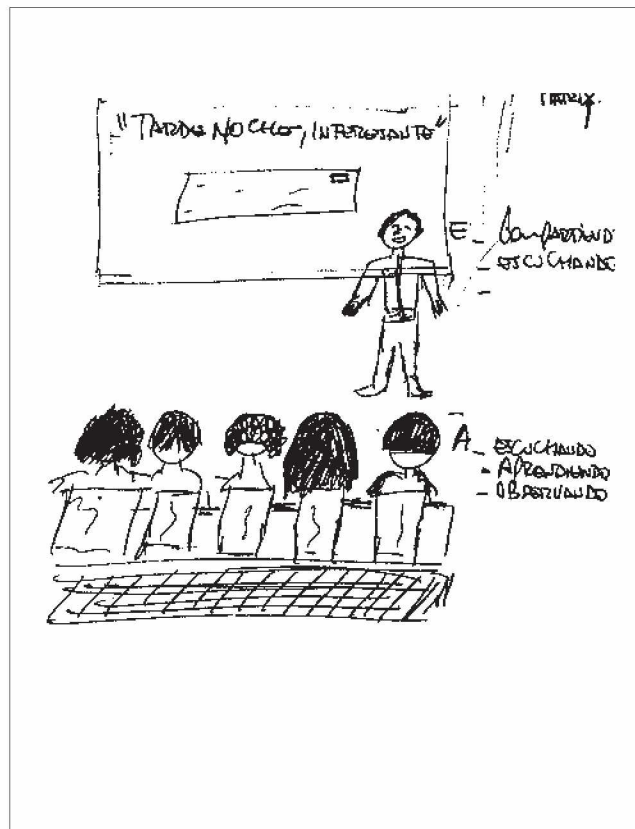 "TARDE NOCHE, INTERESANTE"
E - COMPARTIENDO
- ESCUCHANDO
-
A - ESCUCHANDO
- APRENDIENDO
- OBSERVANDO